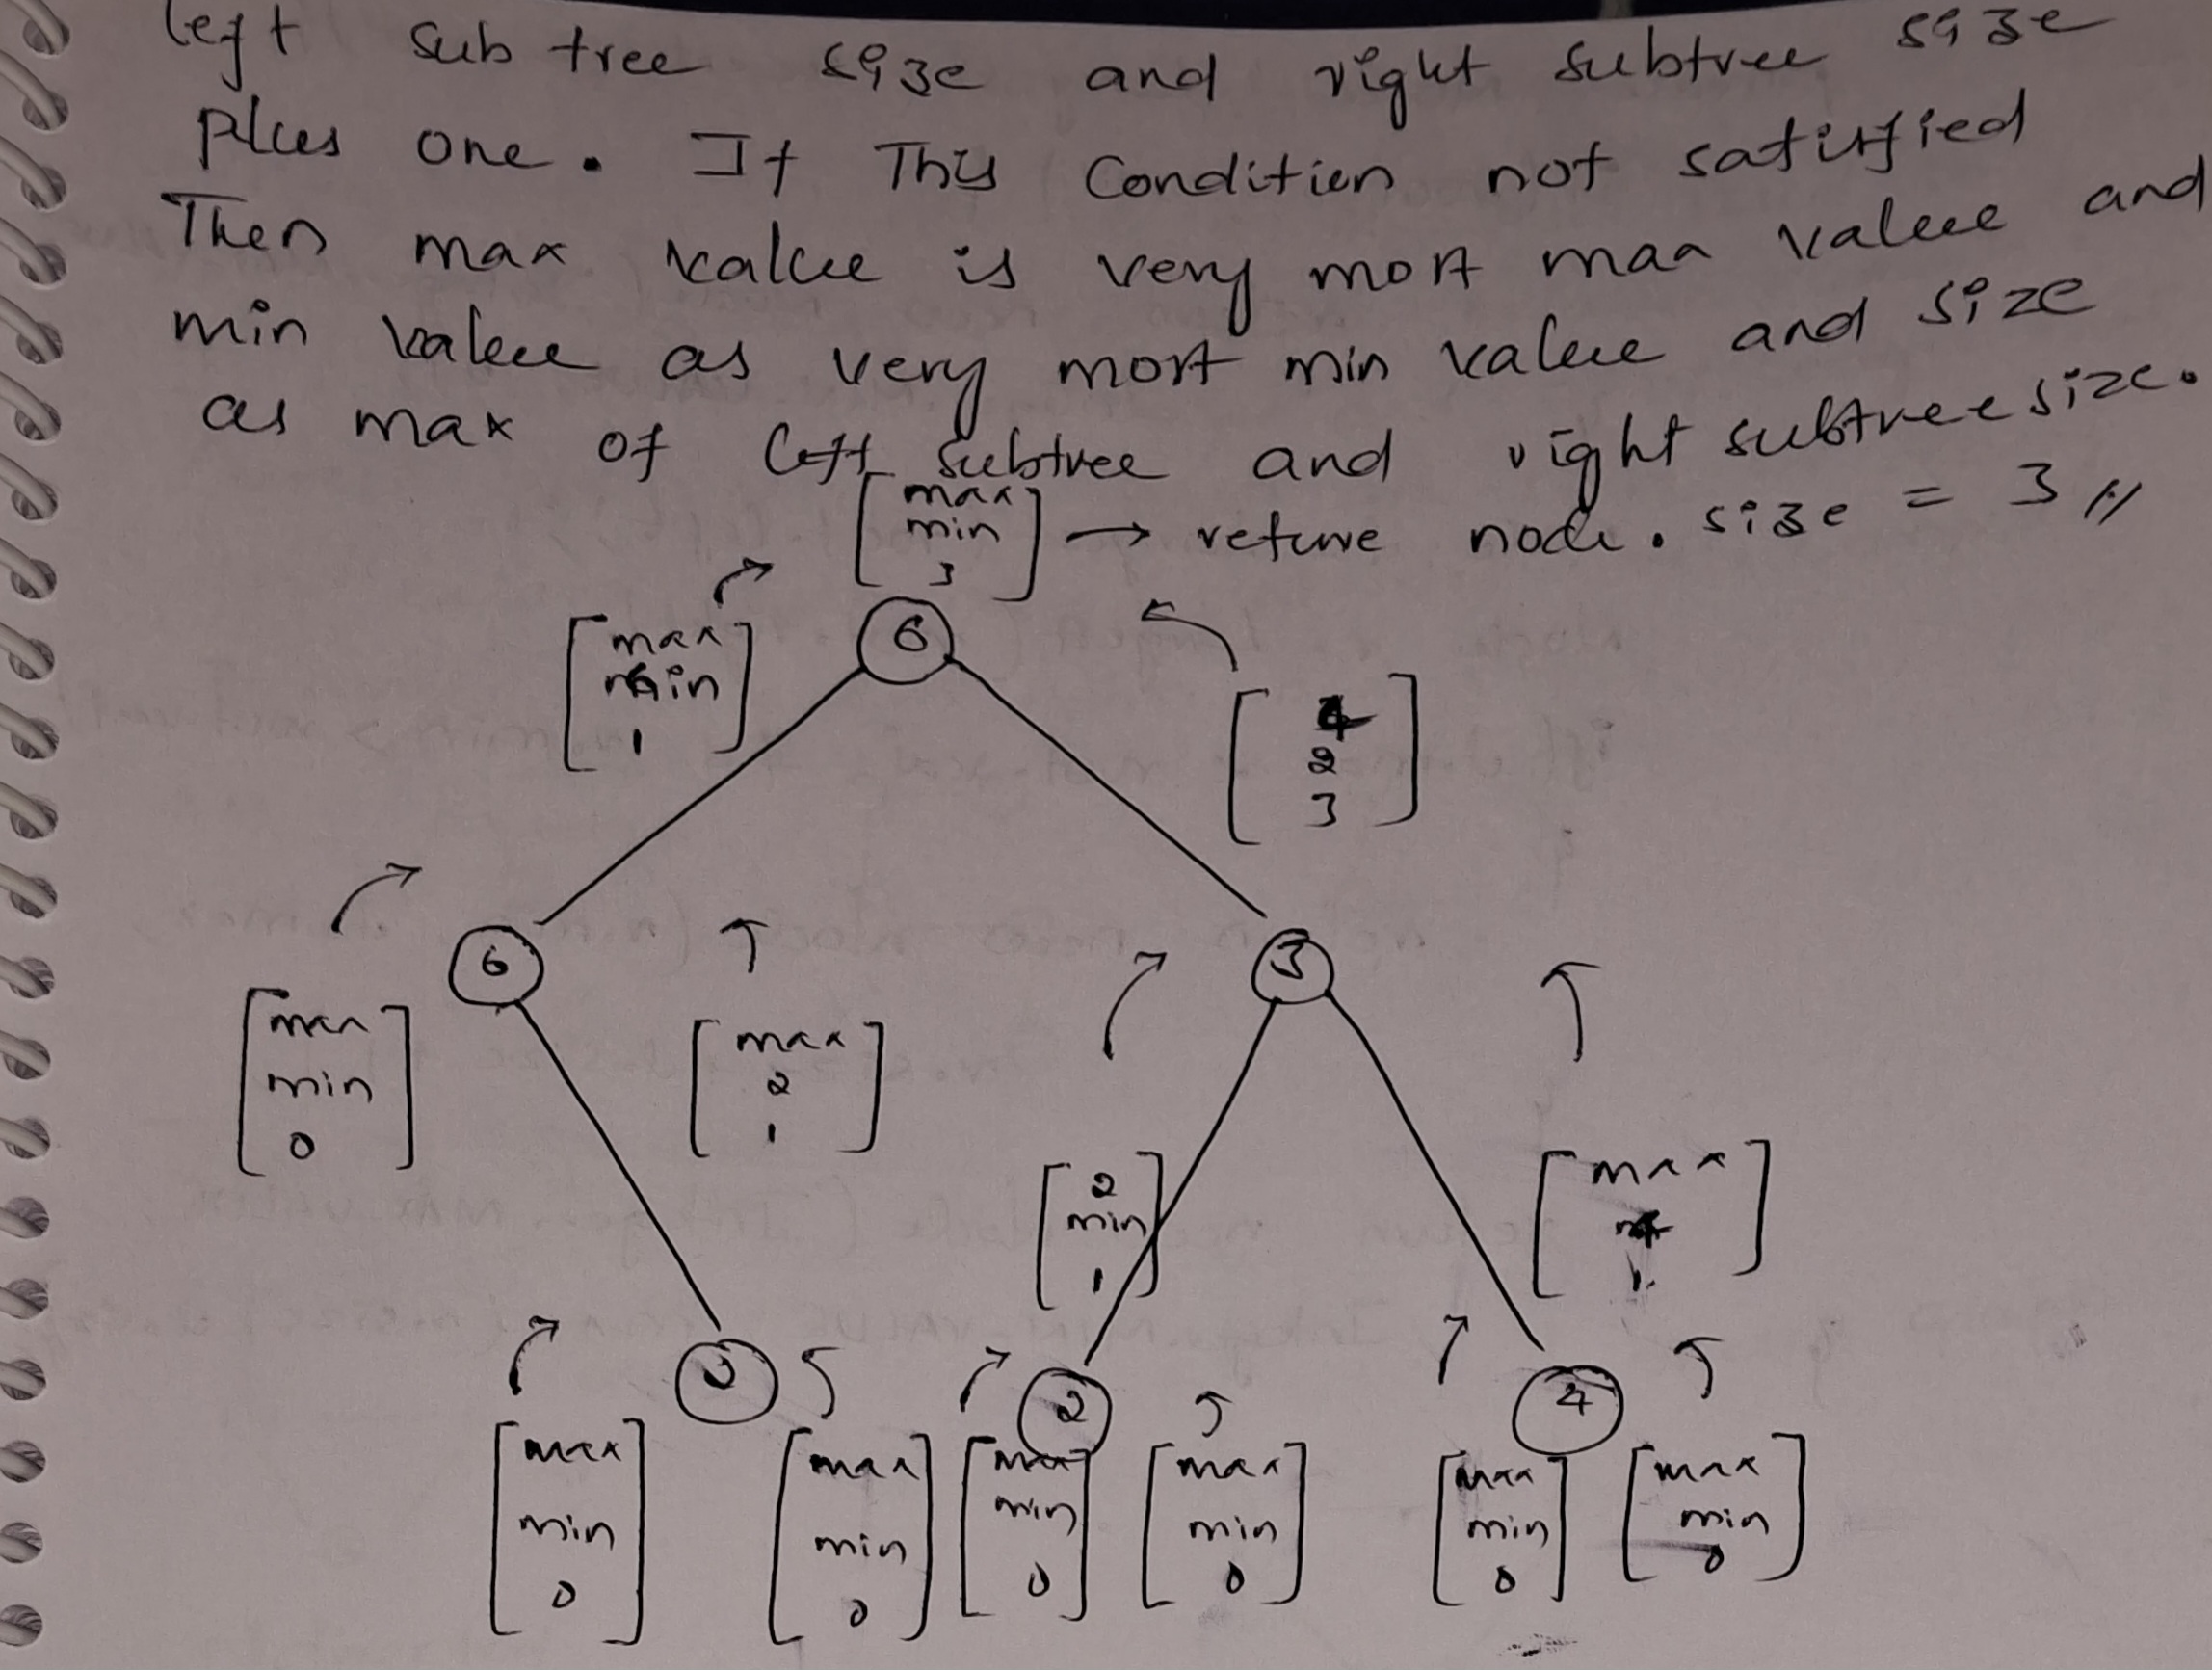 left sub tree size and right subtree size
plus one. If This Condition not satisfied
Then max value is very most max value and
min value as very most min value and size
as max of left subtree and right subtree size.
max
min
3
→ return node. size = 3 //
6
max
min
1
4
2
3
6
3
max
min
0
max
2
1
2
min
1
max
4
1
2
4
max
min
0
max
min
0
max
min
0
max
min
0
max
min
0
max
min
0